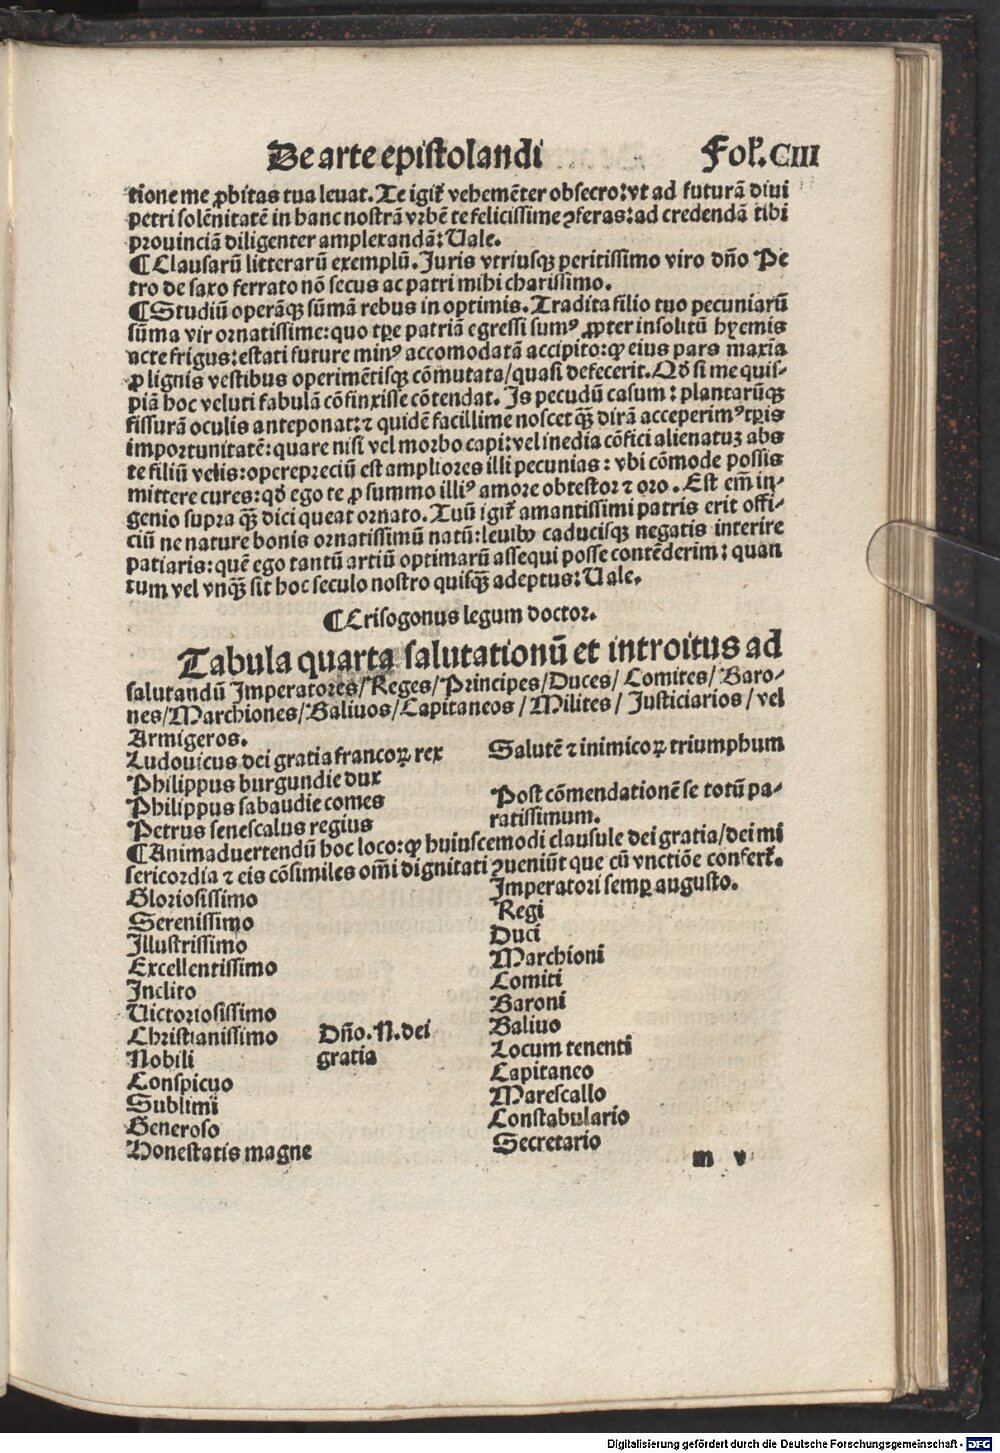 De arte epistolandi Fol. CIII
tione me ꝓbitas tua leuat. Te igit᷑ vehemēter obsecro: vt ad futurā diui
petri solēnitatē in hanc nostrā vrbē te felicissime ꝯferas: ad credendā tibi
prouinciā diligenter amplexandā: Uale.
¶ Clausarū litterarū exemplū. Juris vtriusqꝫ peritissimo viro dño Pe
tro de saxo ferrato nō secus ac patri mihi charissimo.
¶ Studiū operāqꝫ sūmā rebus in optimis. Tradita filio tuo pecuniarū
sūma vir ornatissime: quo tꝑe patriā egressi sumꝰ ꝓpter insolitū hyemis
acre frigus: estati future minꝰ accomodatā accipito: ꝙ eius pars maxīa
ꝓ lignis vestibus operimētisqꝫ cōmutata/ quasi defecerit. Qď si me quis-
piā hoc veluti fabulā cōfinxisse cōtendat. Is pecudū casum: plantarūqꝫ
fissurā oculis anteponat: ⁊ quidē facillime noscet qꝫ̄ dirā acceperimꝰ tꝑis
importunitatē: quare nisi vel morbo capi: vel inedia cōfici alienatuꝫ abs
te filiū velis: operepreciū est ampliores illi pecunias: vbi cōmode possis
mittere cures: qď ego te ꝓ summo illiꝰ amore obtestor ⁊ oro. Est em̄ in-
genio supra qꝫ̄ dici queat ornato. Tuū igit᷑ amantissimi patris erit offi-
ciū ne nature bonis ornatissimū natū: leuibꝰ caducisqꝫ negatis interire
patiaris: quē ego tantū artiū optimarū assequi posse contēderim: quan
tum vel vnqꝫ̄ sit hoc seculo nostro quisqꝫ̄ adeptus: Uale.
¶ Crisogonus legum doctor.
Tabula quarta salutationū et introitus ad
salutandū Imperatores/ Reges/ Principes/ Duces/ Comites/ Baro-
nes/ Marchiones/ Baliuos/ Capitaneos/ Milites/ Justiciarios/ vel
Armigeros.
Ludouicus dei gratia francoꝝ rex Salutē ⁊ inimicoꝝ triumphum
Philippus burgundie dux
Philippus sabaudie comes Post cōmendationē se totū pa-
Petrus senescalus regius ratissimum.
¶ Animaduertendū hoc loco: ꝙ huiuscemodi clausule dei gratia/ dei mi
sericordia ⁊ eis cōsimiles om̄i dignitati ꝯueniūt que cū vnctiōe confert᷑.
Gloriosissimo Imperatori semꝑ augusto.
Serenissimo Regi
Illustrissimo Duci
Excellentissimo Marchioni
Inclito Comiti
Uictoriosissimo Baroni
Christianissimo Dño. N. dei Baliuo
Nobili gratia Locum tenenti
Conspicuo Capitaneo
Sublimi Marescallo
Generoso Constabulario
Honestatis magne Secretario
m v
Digitalisierung gefördert durch die Deutsche Forschungsgemeinschaft - DFG